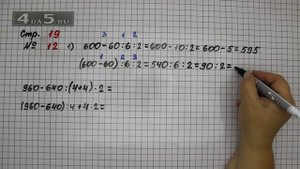 4DA5.RU
Стр. 19
№ 12 1) 600-60:6:2=600-10:2=600-5=595
3 1 2
(600-60):6:2=540:6:2=90:2=
1 2 3
960-640:(4+4)·2=
(960-640):4+4·2=